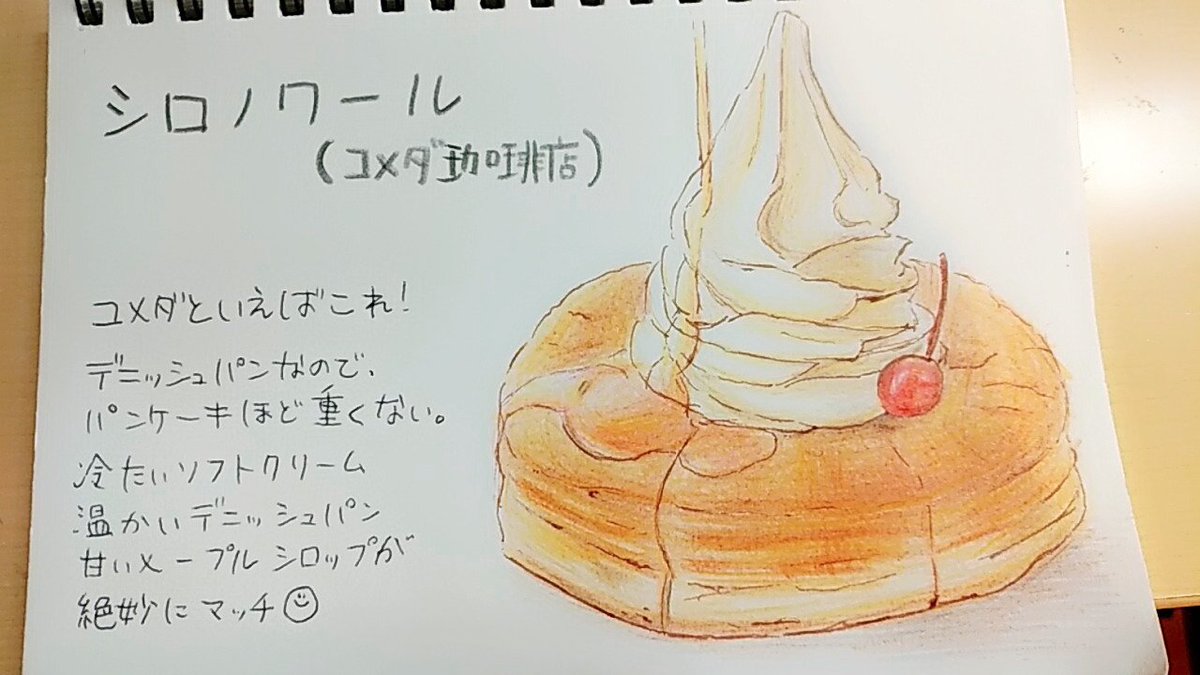 シロノワール
(コメダ珈琲店)
コメダといえばこれ!
デニッシュパンなので、
パンケーキほど重くない。
冷たいソフトクリーム
温かいデニッシュパン
甘いメープルシロップが
絶妙にマッチ☺